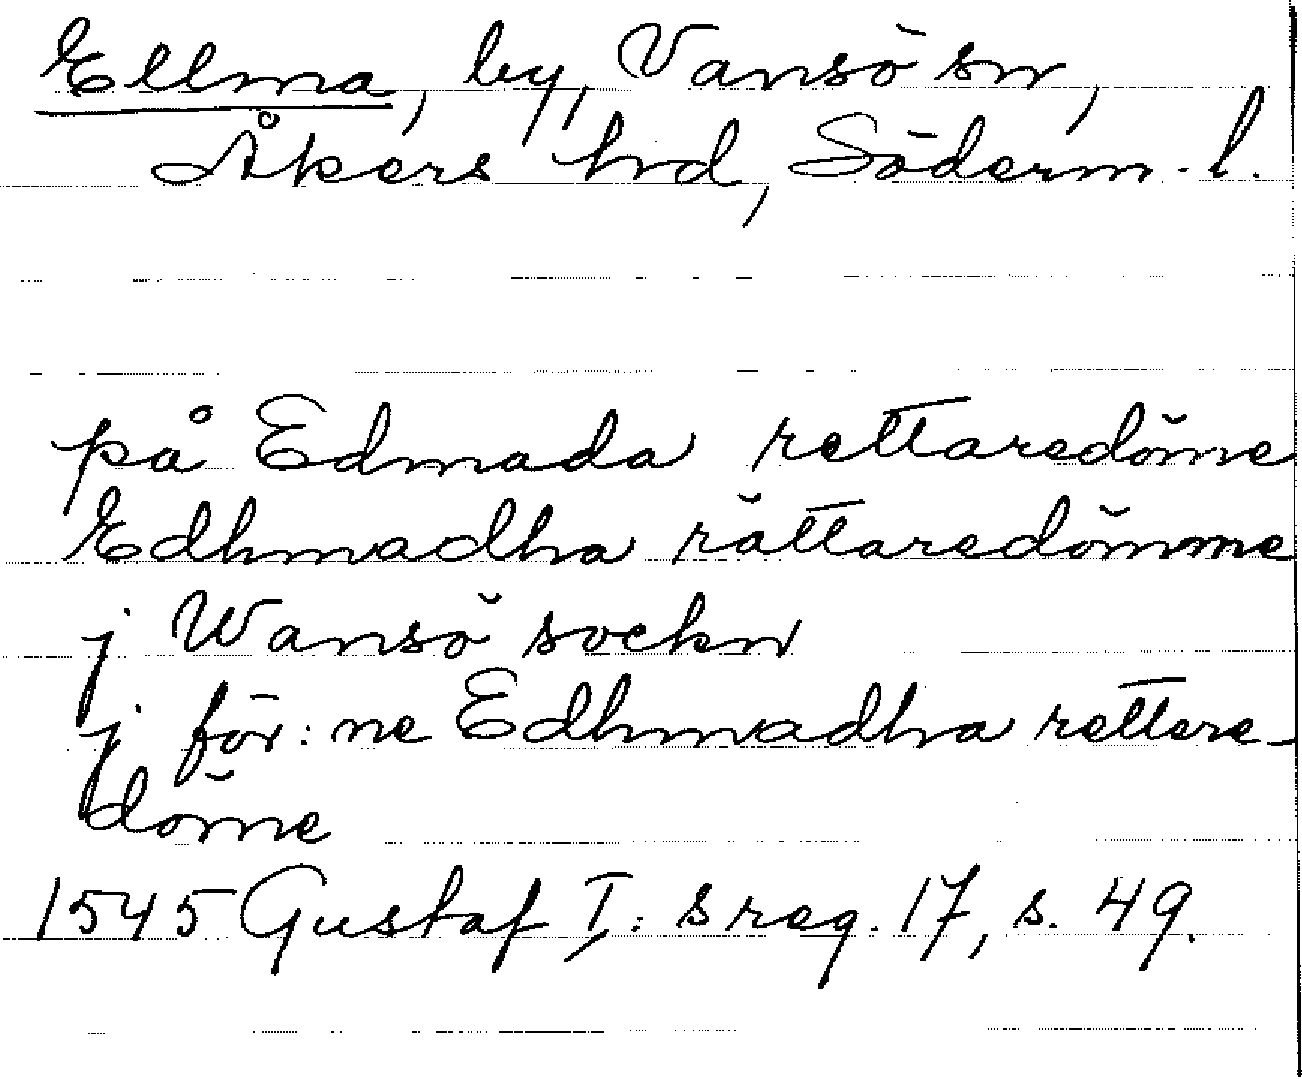 Ellma, by, Vansö sn,
Åkers hrd, Söderm. l.
på Edmada rettaredöme
Edhmadha rättaredömme
j Wansö sockn
j för: ne Edhmadha rettere-
döme
1545 Gustaf I: s reg. 17, s. 49.